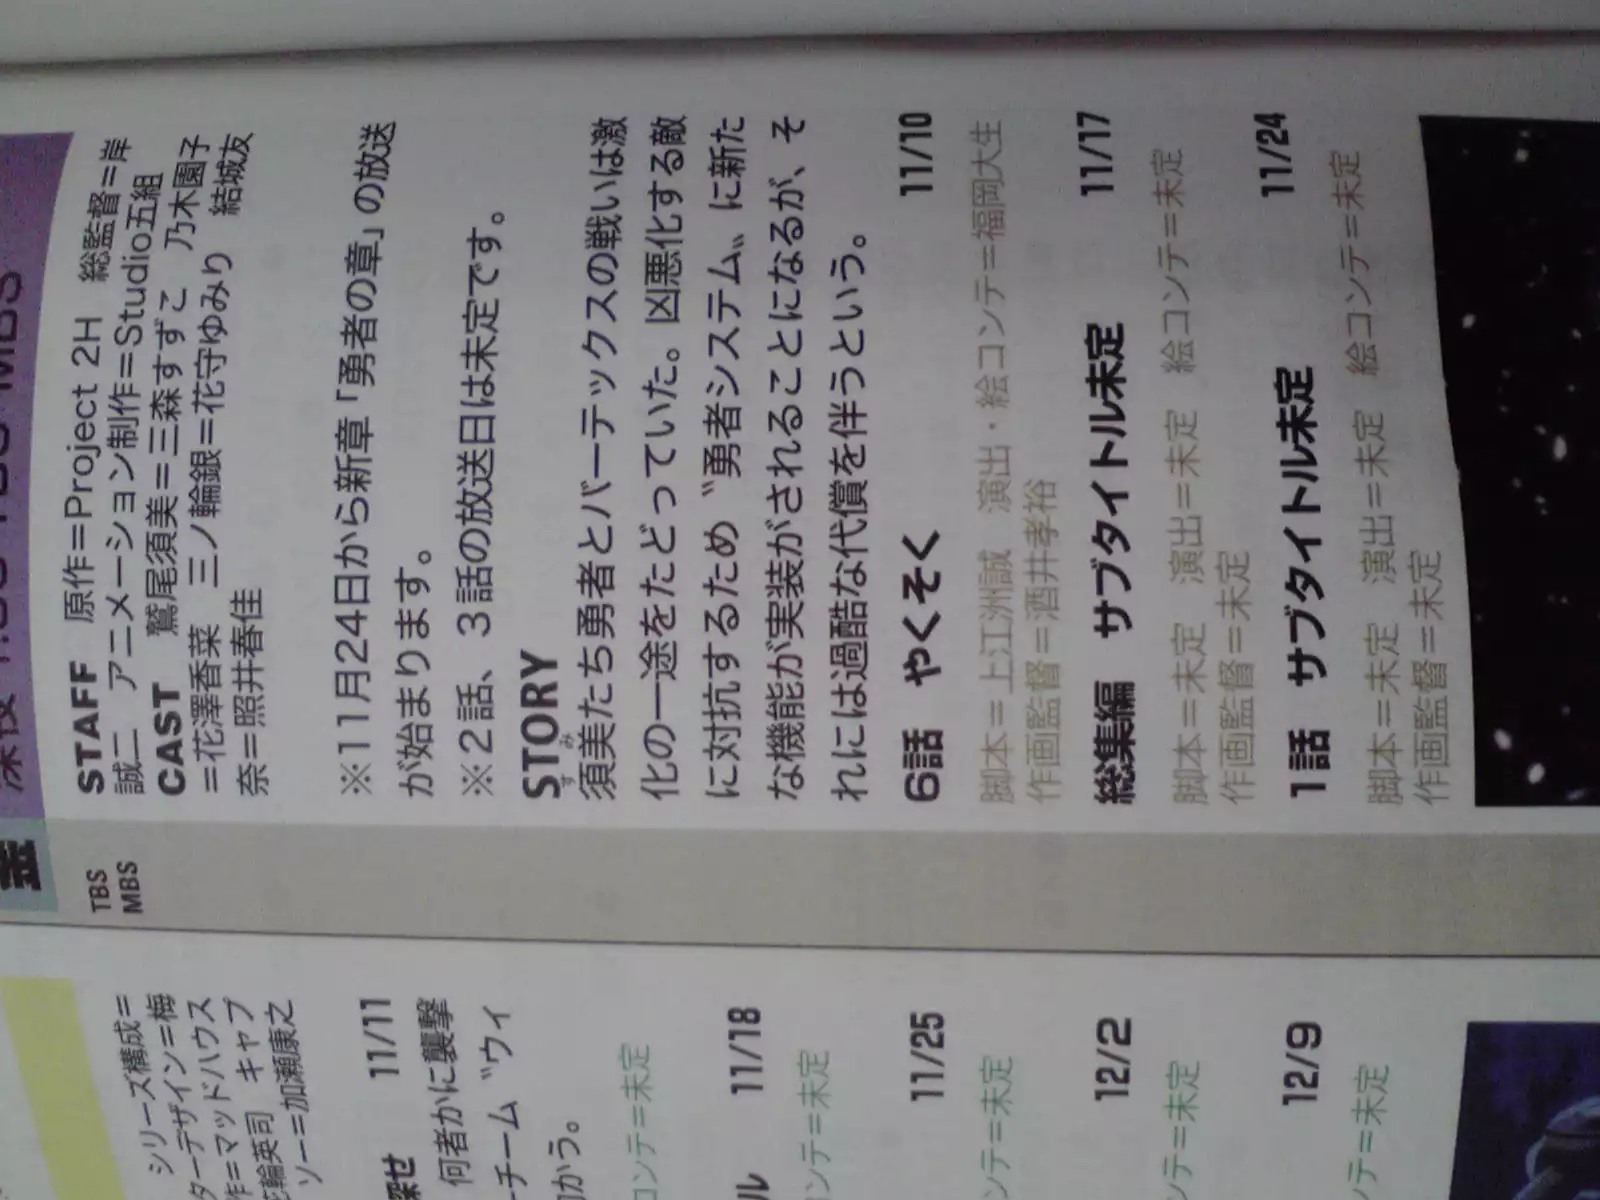 TBS
MBS
STAFF 原作＝Project 2H 総監督＝岸
誠二 アニメーション制作＝Studio五組
CAST 鷲尾須美＝三森すずこ 乃木園子
＝花澤香菜 三ノ輪銀＝花守ゆみり 結城友
奈＝照井春佳
※11月24日から新章「勇者の章」の放送
が始まります。
※2話、3話の放送日は未定です。
STORY
須美たち勇者とバーテックスの戦いは激
すみ
化の一途をたどっていた。凶悪化する敵
に対抗するため〝勇者システム〟に新た
な機能が実装がされることになるが、そ
れには過酷な代償を伴うという。
6話 やくそく 11/10
脚本＝上江洲誠 演出・絵コンテ＝福岡大生
作画監督＝酒井孝裕
総集編 サブタイトル未定 11/17
脚本＝未定 演出＝未定 絵コンテ＝未定
作画監督＝未定
1話 サブタイトル未定 11/24
脚本＝未定 演出＝未定 絵コンテ＝未定
作画監督＝未定
シリーズ構成＝
ターデザイン＝梅
作＝マッドハウス
花輪英司 キャプ
ソー＝加瀬康之
探せ 11/11
何者かに襲撃
ーチーム〝ウィ
向かう。
コンテ＝未定
ル 11/18
コンテ＝未定
11/25
ンテ＝未定
12/2
ンテ＝未定
12/9
ンテ＝未定